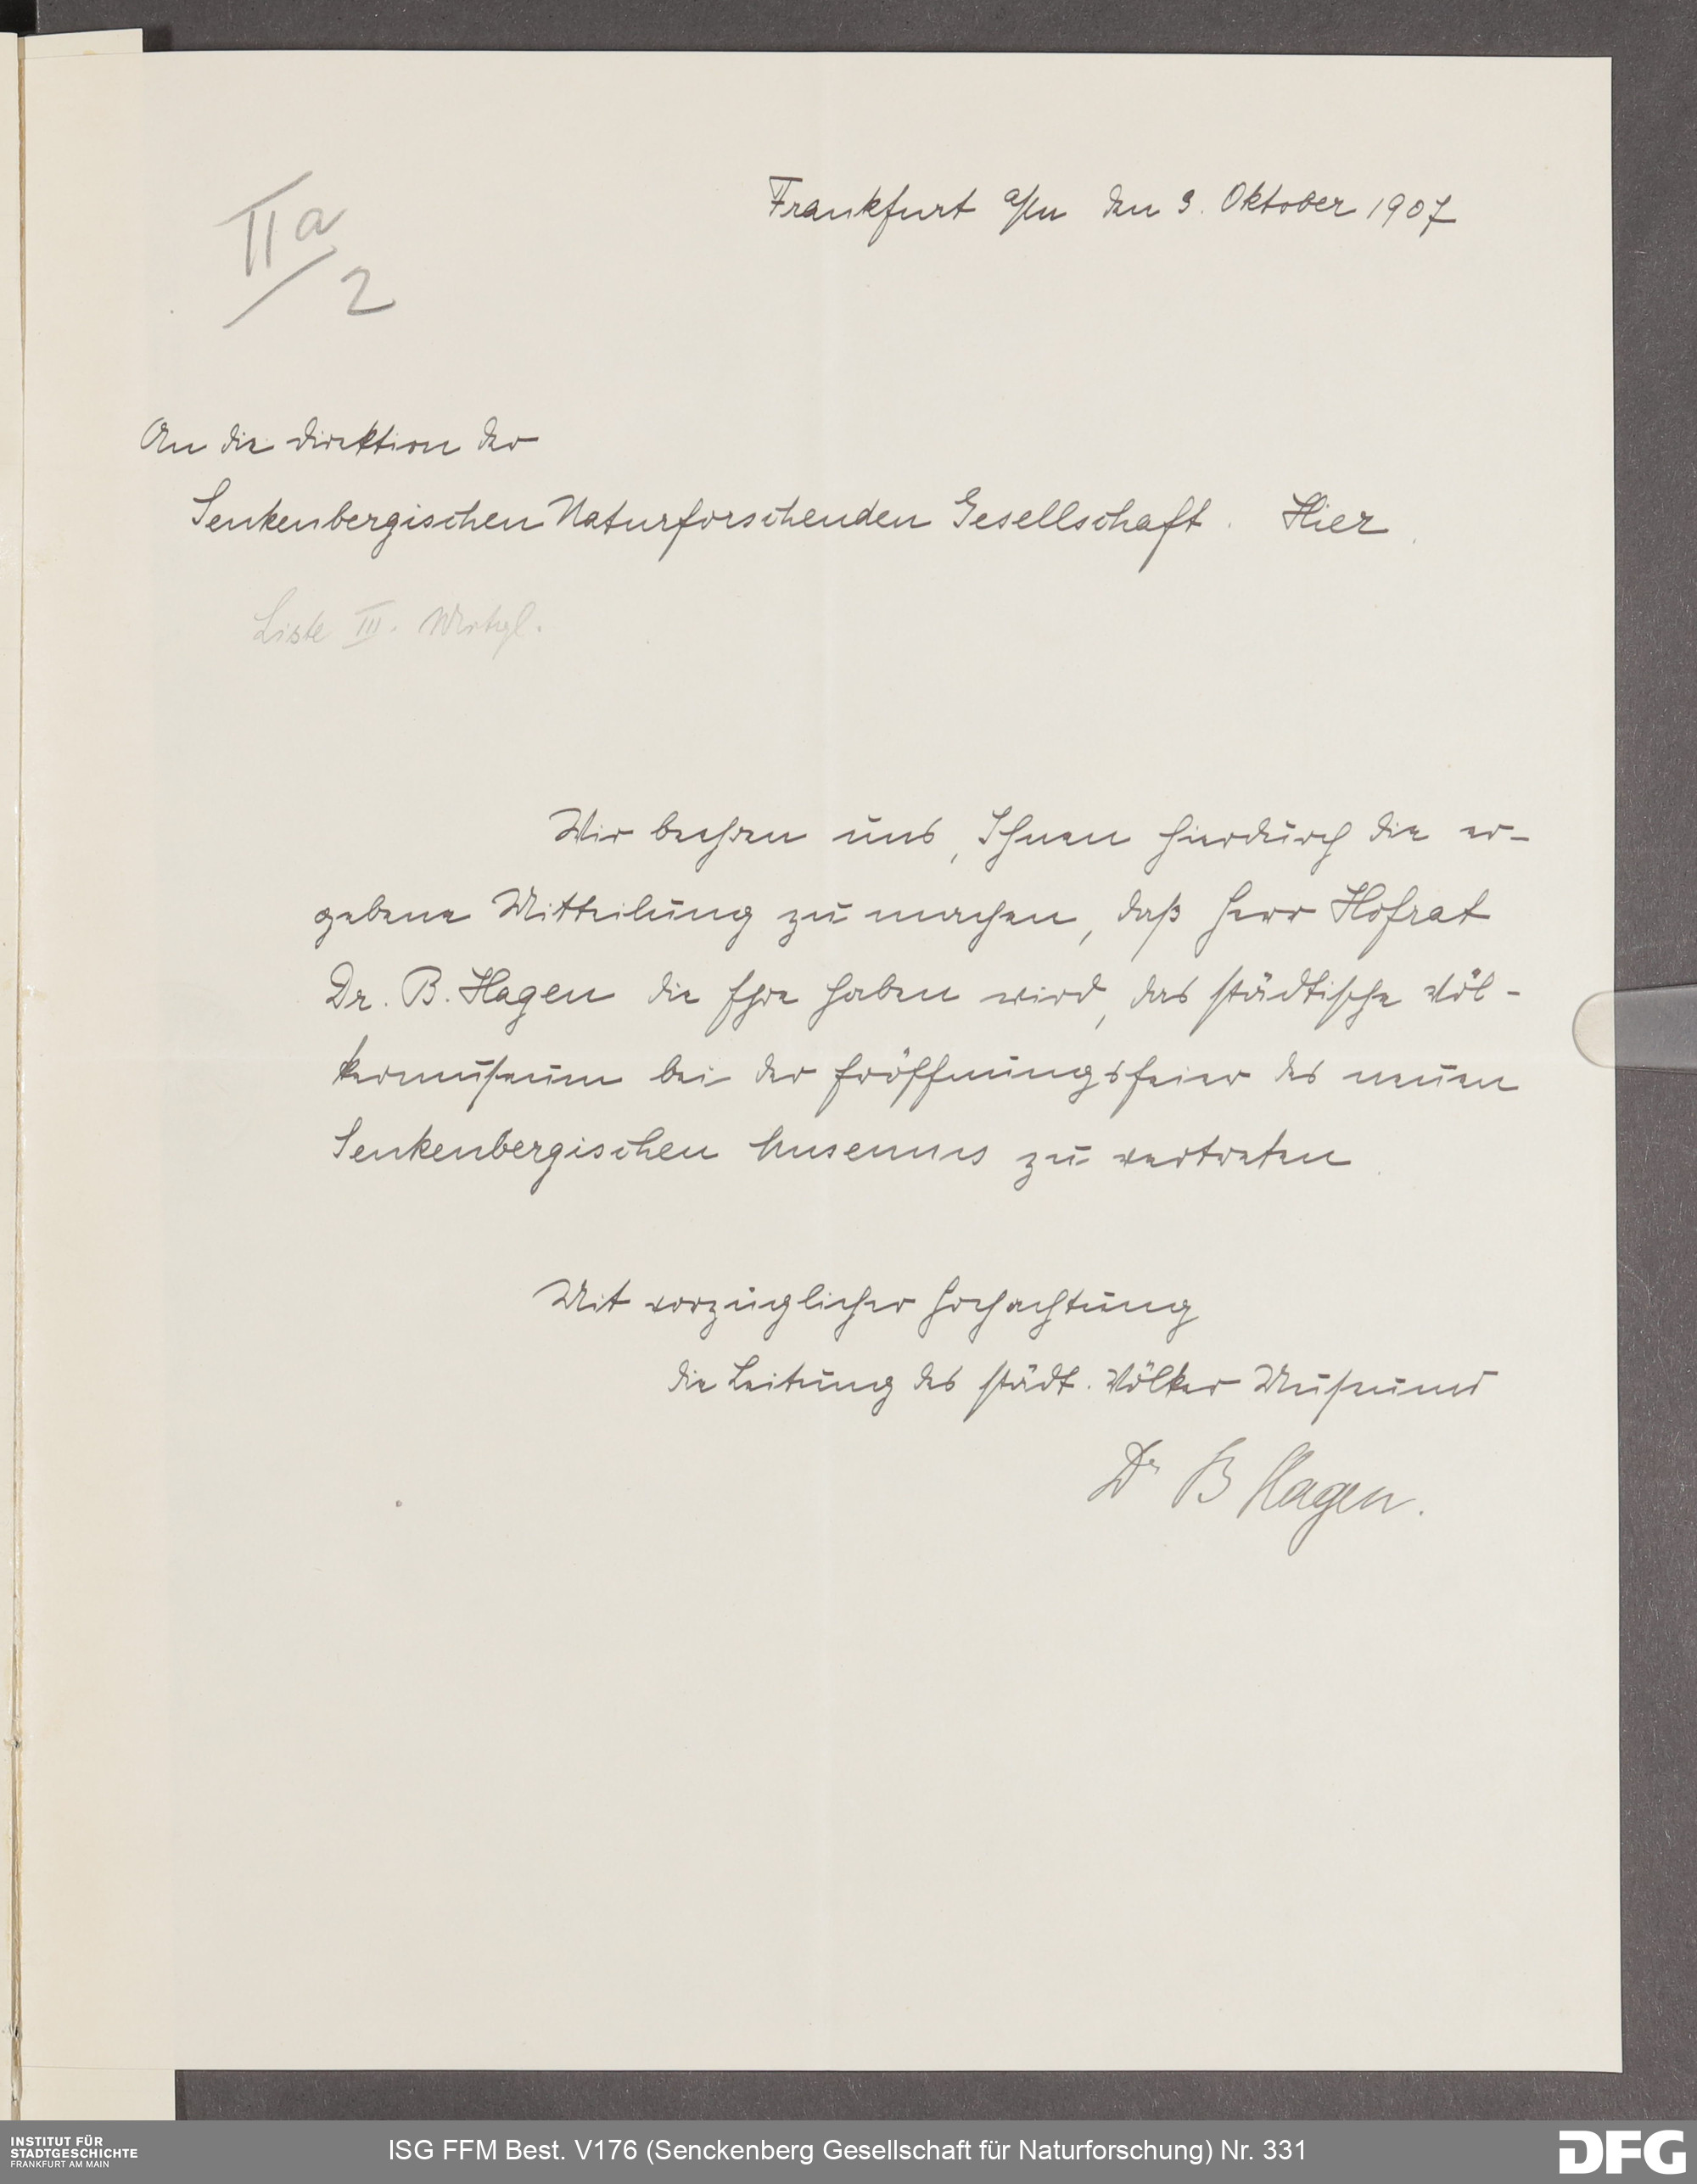 Frankfurt a/M den 9. Oktober 1907
IIa/2
An die Direktion der
Senkenbergischen Naturforschenden Gesellschaft. Hier.
Liste III.
Wir beehren uns, Ihnen hierdurch die er-
gebene Mitteilung zu machen, daß Herr Hofrat
Dr. B. Hagen die Ehre haben wird, das städtische Völ-
kermuseum bei der Eröffnungsfeier des neuen
Senkenbergischen Museums zu vertreten.
Mit vorzüglicher Hochachtung
die Leitung des städt. Völker Museums
Dr B Hagen.
INSTITUT FÜR
STADTGESCHICHTE
FRANKFURT AM MAIN
ISG FFM Best. V176 (Senckenberg Gesellschaft für Naturforschung) Nr. 331
DFG